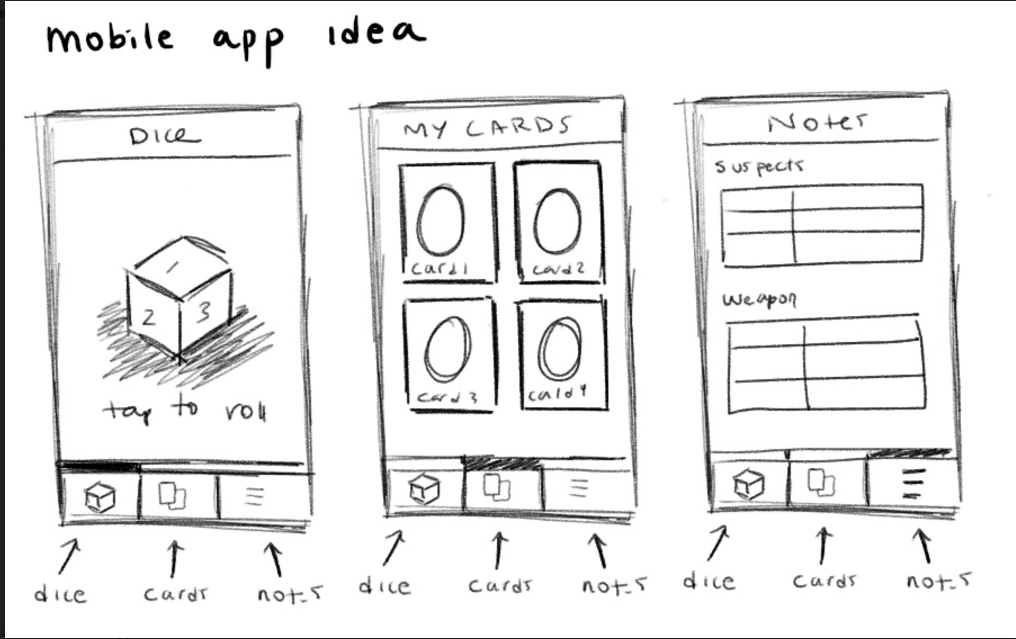 mobile app idea
Dice
1
2 3
tap to roll
dice cards notes
MY CARDS
card1 card2
card 3 card4
dice cards notes
Notes
suspects
weapon
dice cards notes